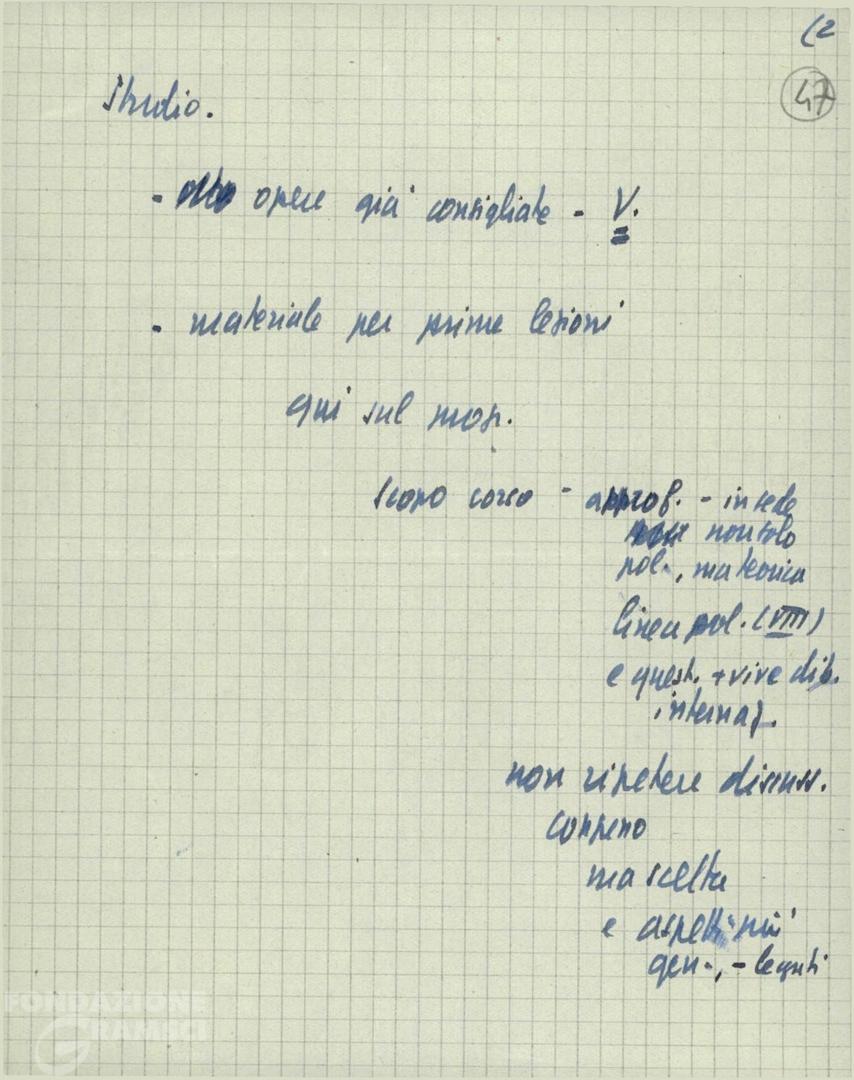 (2
47
Studio.
- opere già consigliate - V.
- materiale per prime lezioni
qui sul mov.
scopo corso - approf. - in sede
non solo
pol., ma teorica
linea pol. (VIII)
e quest. + vive dib.
internaz.
non ripetere discuss.
congresso
ma scelta
e aspetti più
gen., - legati
FONDAZIONE
GRAMSCI